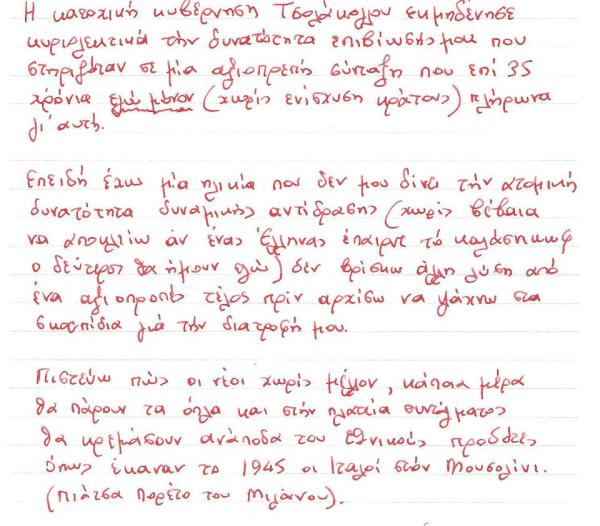 Η κατοχική κυβέρνηση Τσολάκογλου εκμηδένησε
κυριολεκτικά την δυνατότητα επιβίωσής μου που
στηριζόταν σε μία αξιοπρεπή σύνταξη που επί 35
χρόνια εγώ μόνον (χωρίς ενίσχυση κράτους) πλήρωνα
γι' αυτή.
Επειδή έχω μία ηλικία που δεν μου δίνει την ατομική
δυνατότητα δυναμικής αντίδρασης (χωρίς βέβαια
να αποκλείω αν ένας Έλληνας έπαιρνε το καλάσνικωφ
ο δεύτερος θα ήμουν εγώ) δεν βρίσκω άλλη λύση από
ένα αξιοπρεπές τέλος πριν αρχίσω να ψάχνω στα
σκουπίδια για την διατροφή μου.
Πιστεύω πως οι νέοι χωρίς μέλλον, κάποια μέρα
θα πάρουν τα όπλα και στην πλατεία συντάγματος
θα κρεμάσουν ανάποδα του εθνικούς προδότες
όπως έκαναν το 1945 οι Ιταλοί στον Μουσολίνι.
(Πιάτσα Πορέτο του Μιλάνου).